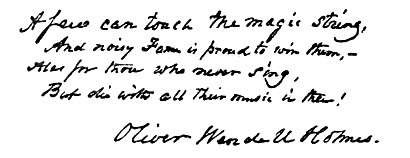 A few can touch the magic string,
And noisy Fame is proud to win them,—
Alas for those who never sing,
But die with all their music in them!
Oliver Wendell Holmes.